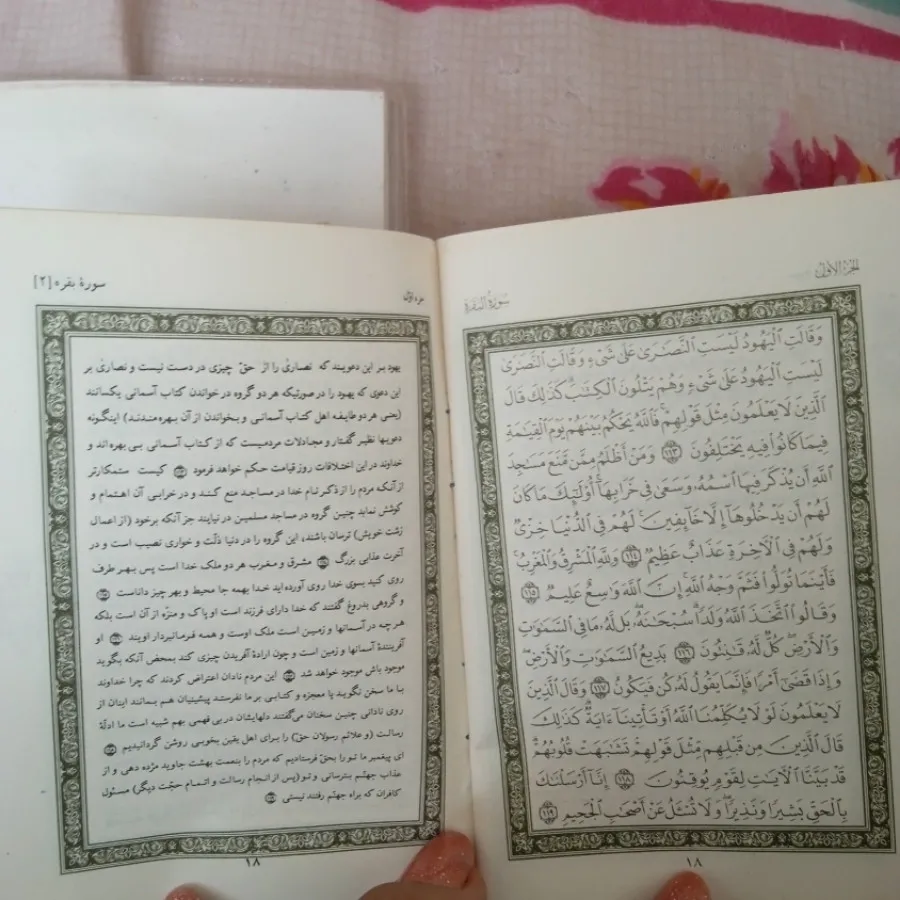 الجزء الأول
سورة البقرة
وَقَالَتِ ٱلْيَهُودُ لَيْسَتِ ٱلنَّصَٰرَىٰ عَلَىٰ شَىْءٍ وَقَالَتِ ٱلنَّصَٰرَىٰ
لَيْسَتِ ٱلْيَهُودُ عَلَىٰ شَىْءٍ وَهُمْ يَتْلُونَ ٱلْكِتَٰبَ كَذَٰلِكَ قَالَ
ٱلَّذِينَ لَا يَعْلَمُونَ مِثْلَ قَوْلِهِمْ فَٱللَّهُ يَحْكُمُ بَيْنَهُمْ يَوْمَ ٱلْقِيَٰمَةِ
فِيمَا كَانُوا۟ فِيهِ يَخْتَلِفُونَ ١١٣ وَمَنْ أَظْلَمُ مِمَّن مَّنَعَ مَسَٰجِدَ
ٱللَّهِ أَن يُذْكَرَ فِيهَا ٱسْمُهُۥ وَسَعَىٰ فِى خَرَابِهَآ أُو۟لَٰٓئِكَ مَا كَانَ
لَهُمْ أَن يَدْخُلُوهَآ إِلَّا خَآئِفِينَ لَهُمْ فِى ٱلدُّنْيَا خِزْىٌ
وَلَهُمْ فِى ٱلْءَاخِرَةِ عَذَابٌ عَظِيمٌ ١١٤ وَلِلَّهِ ٱلْمَشْرِقُ وَٱلْمَغْرِبُ
فَأَيْنَمَا تُوَلُّوا۟ فَثَمَّ وَجْهُ ٱللَّهِ إِنَّ ٱللَّهَ وَٰسِعٌ عَلِيمٌ ١١٥
وَقَالُوا۟ ٱتَّخَذَ ٱللَّهُ وَلَدًا سُبْحَٰنَهُۥ بَل لَّهُۥ مَا فِى ٱلسَّمَٰوَٰتِ
وَٱلْأَرْضِ كُلٌّ لَّهُۥ قَٰنِتُونَ ١١٦ بَدِيعُ ٱلسَّمَٰوَٰتِ وَٱلْأَرْضِ
وَإِذَا قَضَىٰٓ أَمْرًا فَإِنَّمَا يَقُولُ لَهُۥ كُن فَيَكُونُ ١١٧ وَقَالَ ٱلَّذِينَ
لَا يَعْلَمُونَ لَوْلَا يُكَلِّمُنَا ٱللَّهُ أَوْ تَأْتِينَآ ءَايَةٌ كَذَٰلِكَ
قَالَ ٱلَّذِينَ مِن قَبْلِهِم مِّثْلَ قَوْلِهِمْ تَشَٰبَهَتْ قُلُوبُهُمْ
قَدْ بَيَّنَّا ٱلْءَايَٰتِ لِقَوْمٍ يُوقِنُونَ ١١٨ إِنَّآ أَرْسَلْنَٰكَ
بِٱلْحَقِّ بَشِيرًا وَنَذِيرًا وَلَا تُسْـَٔلُ عَنْ أَصْحَٰبِ ٱلْجَحِيمِ ١١٩
١٨
جزء اول
سورهٔ بقره [۲]
یهود بر این دعویند که نصاری را از حقّ چیزی در دست نیست و نصاری بر
این دعوی که یهود را در صورتیکه هر دو گروه در خواندن کتاب آسمانی یکسانند
(یعنی هر دو طایفه اهل کتاب آسمانی و بخواندن از آن بهره‌مندند) اینگونه
دعویها نظیر گفتار و مجادلات مردمیست که از کتاب آسمانی بی بهره‌اند و
خداوند در این اختلافات روز قیامت حکم خواهد فرمود کیست ستمکارتر
از آنکه مردم را از ذکر نام خدا در مساجد منع کند و در خرابی آن اهتمام و
کوشش نماید چنین گروه در مساجد مسلمین در نیایند جز آنکه برخود (از اعمال
زشت خویش) ترسان باشند، این گروه را در دنیا ذلّت و خواری نصیب است و در
آخرت عذابی بزرگ مشرق و مغرب هر دو ملک خدا است پس بهر طرف
روی کنید بسوی خدا روی آورده اید خدا بهمه جا محیط و بهر چیز داناست
و گروهی بدروغ گفتند که خدا دارای فرزند است او پاک و منزّه از آن است بلکه
هر چه در آسمانها و زمین است ملک اوست و همه فرمانبردار اویند او
آفرینندهٔ آسمانها و زمین است و چون ارادهٔ آفریدن چیزی کند بمحض آنکه بگوید
موجود باش موجود خواهد شد این مردم نادان اعتراض کردند که چرا خداوند
با ما سخن نگوید یا معجزه و کتابی بر ما نفرستد پیشینیان هم بمانند اینان از
روی نادانی چنین سخنان می‌گفتند دلهایشان در بی فهمی بهم شبیه است ما ادلّهٔ
رسالت (و علائم رسولان حق) را برای اهل یقین بخوبی روشن گردانیدیم
ای پیغمبر ما تو را بحقّ فرستادیم که مردم را بنعمت بهشت جاوید مژده دهی و از
عذاب جهنّم بترسانی و تو (پس از انجام رسالت و اتمام حجّت دیگر) مسئول
کافران که براه جهنّم رفتند نیستی
۱۸